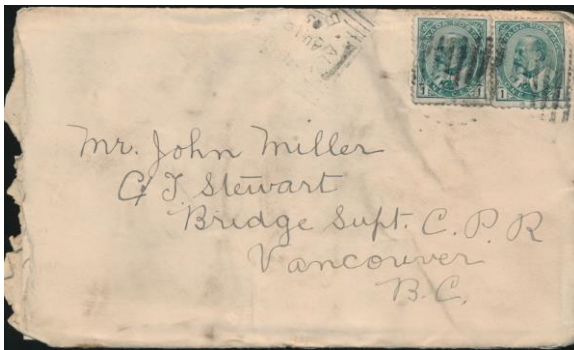 Mr. John Miller
C/ J. Stewart
Bridge Supt. C. P. R
Vancouver
B.C.
1 1 1